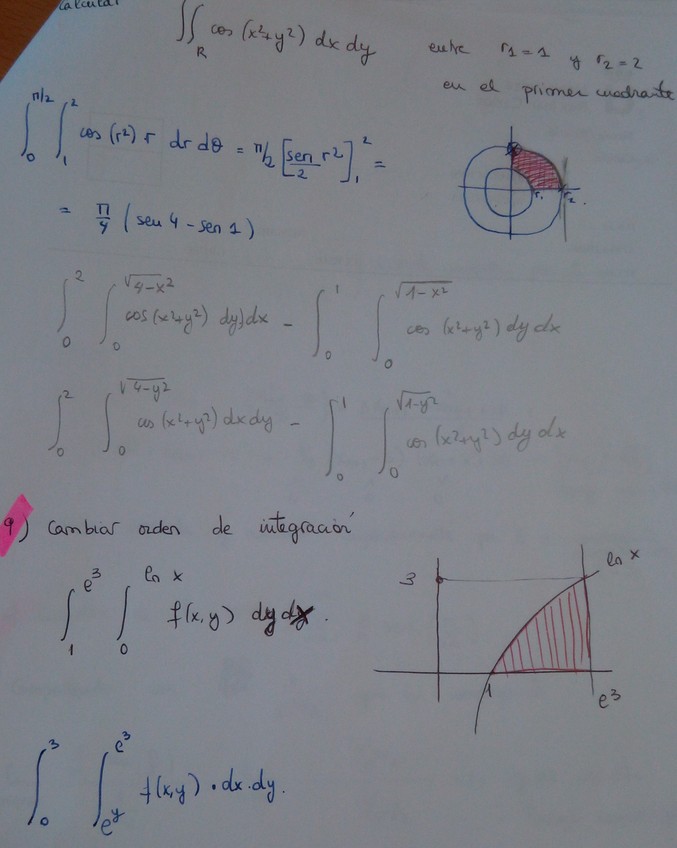 Calcular
∬_R cos (x²+y²) dx dy entre r₁=1 y r₂=2
en el primer cuadrante
∫_0^{π/2} ∫_1^2 cos (r²) r dr dθ = π/2 [sen r²/2]_1^2 =
= π/4 (sen 4 - sen 1)
r₁ r₂
∫_0^2 ∫_0^{√4-x²} cos (x²+y²) dy)dx - ∫_0^1 ∫_0^{√1-x²} cos (x²+y²) dy dx
∫_0^2 ∫_0^{√4-y²} cos (x²+y²) dx dy - ∫_0^1 ∫_0^{√1-y²} cos (x²+y²) dy dx
9) Cambiar orden de integración
∫_1^{e³} ∫_0^{ln x} f(x,y) dy dx.
3 ln x
1 e³
∫_0^3 ∫_{e^y}^{e³} f(x,y) · dx · dy.